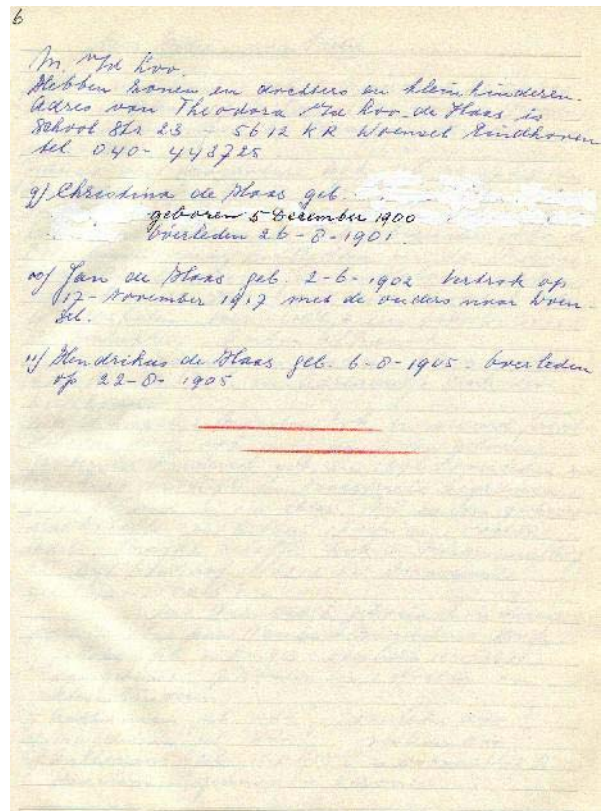 6
M. v/d Loo.
Hebben zonen en dochters en kleinkinderen.
Adres van Theodora v/d Loo-de Haas is
School Str 23 - 5612 KR Woensel Eindhoven
tel. 040-443725
9) Christina de Haas geb.
geboren 5 December 1900
overleden 26-8-1901.
10) Jan de Haas geb. 2-6-1902 vertrok op
17-November 1917 met de ouders naar Woen-
sel.
11) Hendrikus de Haas geb. 6-8-1905. overleden
op 22-8-1905